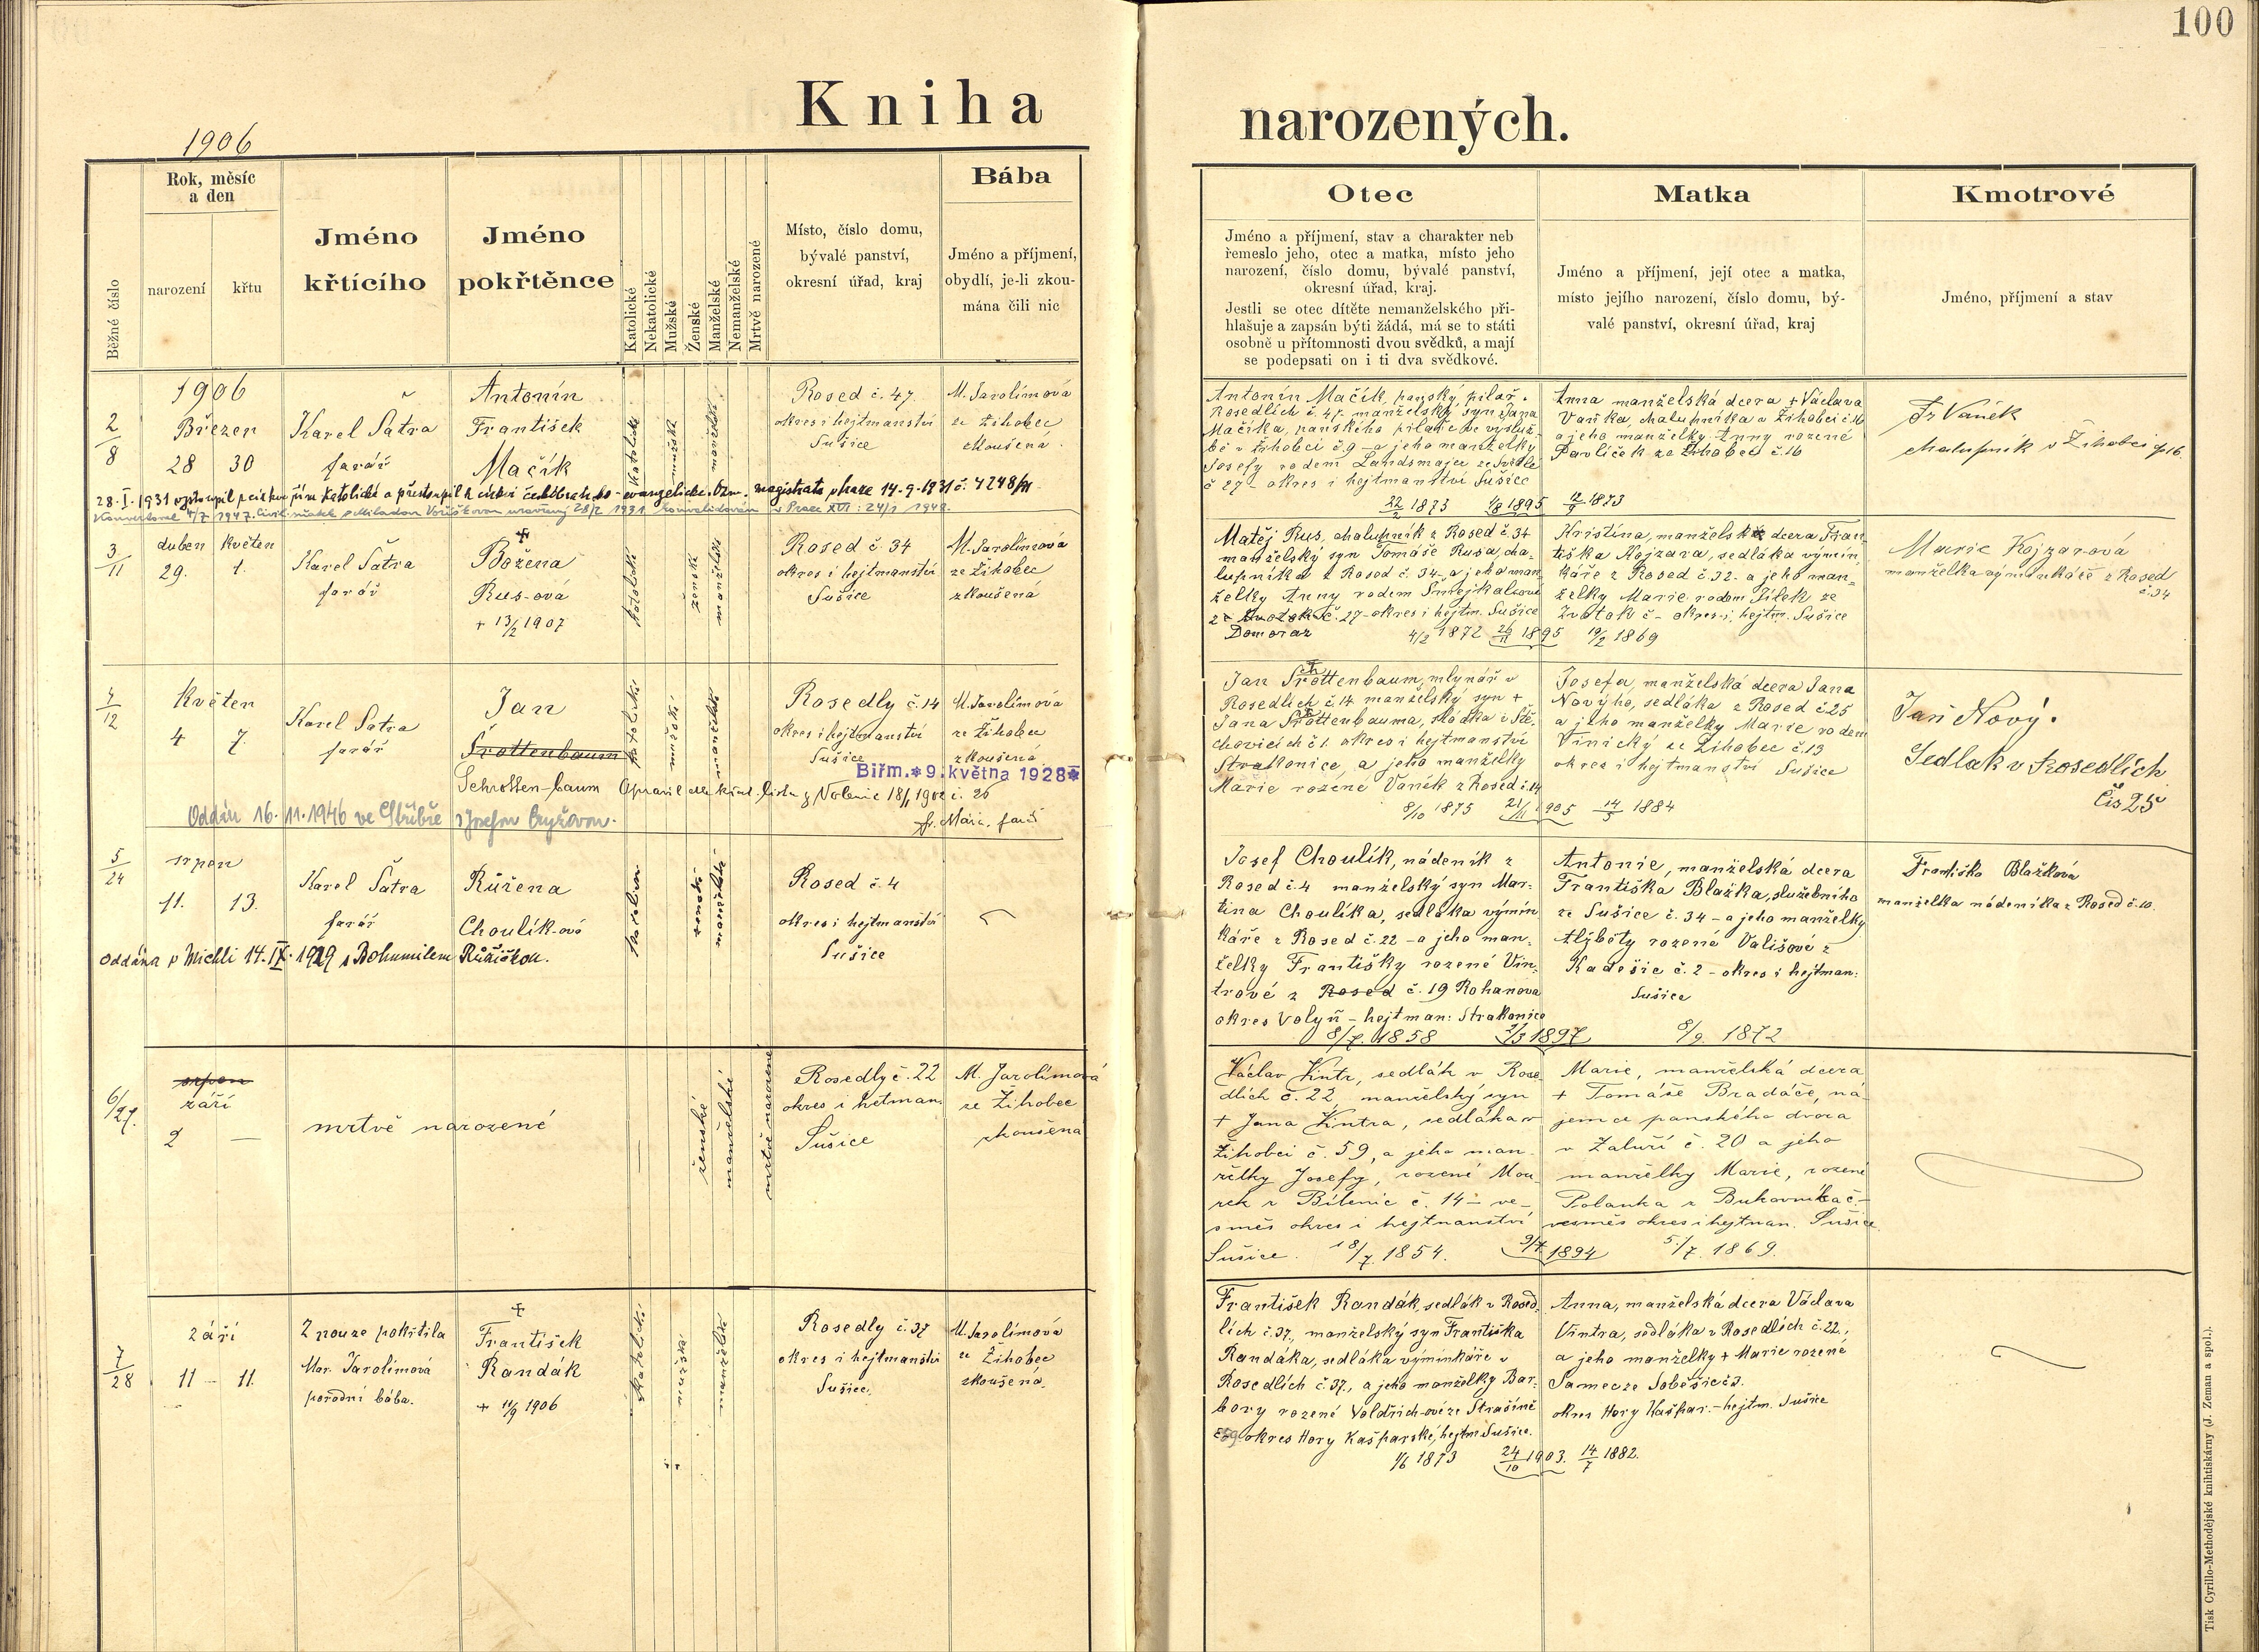 100
Kniha narozených.
1906
Běžné číslo
Rok, měsíc
a den
narození
křtu
Jméno
křtícího
Jméno
pokřtěnce
Katolické
Nekatolické
Mužské
Ženské
Manželské
Nemanželské
Mrtvě narozené
Místo, číslo domu,
bývalé panství,
okresní úřad, kraj
Bába
Jméno a příjmení,
obydlí, je-li zkou-
mána čili nic
Otec
Jméno a příjmení, stav a charakter neb
řemeslo jeho, otec a matka, místo jeho
narození, číslo domu, bývalé panství,
okresní úřad, kraj.
Jestli se otec dítěte nemanželského při-
hlašuje a zapsán býti žádá, má se to státi
osobně u přítomnosti dvou svědků, a mají
se podepsati on i ti dva svědkové.
Matka
Jméno a příjmení, její otec a matka,
místo jejího narození, číslo domu, bý-
valé panství, okresní úřad, kraj
Kmotrové
Jméno, příjmení a stav
2/8
1906
Březen
28 30
Karel Šatra
farář
Antonín
František
Mačík
katolické
mužské
manželské
Rosed č. 47
okres i hejtmanství
Sušice
M. Jarolímová
ze Žihobec
zkoušená
Antonín Mačík, panský pilař
Rosedlích č. 47. manželský syn Jana
Mačíka, panského pilaře ve výsluž-
bě v Žihobci č. 9 a jeho manželky
Josefy rodem Landsmajer ze Světlé
č 27 - okres i hejtmanství Sušice
22/2 1873 1895
Anna manželská dcera + Václava
Vaňka, chalupníka v Žihobci č. 16
a jeho manželky Anny rozené
Pavlíček ze Žihobec č. 16
12/9 1873
Fr Vaněk
chalupník v Žihobci čp 16.
28-I-1931 vystoupil z církve řím katolické a přestoupil k církvi českobratrsko-evangelické. Ozn. magistrátu v Praze 14-9-1931 č. 4248/
Konvertoval 4/7 1947. Civil. sňatek s Miladou Voříškovou uzavřený 28/2 1931 konvalidován v Praze XVI: 24/1 1948.
3/11
duben květen
29. 1.
Karel Šatra
farář
Božena
Rus-ová
+ 13/2 1907
katolické
ženské
manželské
Rosed č. 34
okres i hejtmanství
Sušice
M. Jarolímová
ze Žihobec
zkoušená
Matěj Rus, chalupník z Rosed č. 34
manželský syn Tomáše Rusa, cha-
lupníka z Rosed č. 34 - a jeho man-
želky Anny rodem Smejkalové
č. 27 - okres i hejtm. Sušice
Domoraz
4/2 1872 26/11 1895
Kristína, manželská dcera Fran-
tiška Kojzara, sedláka výmin-
káře z Rosed č. 32. a jeho man-
želky Marie rodem Pílek ze
Zvotok č - okres i hejtm. Sušice
19/2 1869
Marie Kojzarová
manželka výminkáře z Rosed
č. 34
4/12
Květen
4 7.
Karel Šatra
farář
Jan
Šrottenbaum
Schrotten-baum Opravil dle křest. listu z Volenic 18/1 1902 č. 26
fr. Mára, farář
katolické
mužské
manželské
Rosedly č. 14
okres i hejtmanství
Sušice
M. Jarolímová
ze Žihobec
zkoušená
Biřm. * 9. května 1928 *
Oddán 16. 11. 1946 ve Stříbře s Josefou Cyžovou.
Jan Šrottenbaum, mlynář v
Rosedlích č. 14 manželský syn +
Jana Šrottenbauma, sládka v Stě-
chovicích č 1. okres i hejtmanství
Strakonice, a jeho manželky
Marie rozené Vaněk z Rosed č. 14
8/10 1875 21/11 1905
Josefa, manželská dcera Jana
Nového, sedláka z Rosed č 25
a jeho manželky Marie rodem
Vinický ze Žihobec č. 13
okres i hejtmanství Sušice
14/5 1884
Jan Nový.
Sedlák v Rosedlích
čís 25
5/24
srpen
11. 13.
Karel Šatra
farář
Růžena
Choulík-ová
katolické
ženské
manželské
Rosed č. 4
okres i hejtmanství
Sušice
Oddána v Michli 14-IX-1929 s Bohumilem Růžičkou.
Josef Choulík, nádeník z
Rosed č. 4 manželský syn Mar-
tina Choulíka, sedláka výmin-
káře z Rosed č. 22 - a jeho man-
želky Františky rozené Vin-
trové z Rosed č. 19 Rohanova
okres Volyň - hejtman: Strakonice
8/7. 1858 1897
Antonie, manželská dcera
Františka Blažka, služebního
ze Sušice č. 34 - a jeho manželky
Alžběty rozené Vališové z
Kadešic č. 2 - okres i hejtman:
Sušice
8/9. 1872
Františka Blažková
manželka nádeníka z Rosed č. 10.
6/27.
srpen
září
2 —
mrtvě narozené
ženské
manželské
mrtvě narozené
Rosedly č. 22
okres i hetman.
Sušice
M. Jarolímová
ze Žihobec
zkoušená
Václav Vintr, sedlák v Rose-
dlích č. 22, manželský syn
+ Jana Vintra, sedláka v
Žihobci č. 59, a jeho man-
želky Josefy, rozené Mou-
rek z Bílenic č. 14 - ve-
směs okres i hejtmanství
Sušice. 18/7. 1854. 9/7 1894
Marie, manželská dcera
+ Tomáše Bradáče, ná-
jemce panského dvora
v Zaluží č. 20 a jeho
manželky Marie, rozené
Polanka z Bukovníka č -
vesměs okres i hejtman. Sušice
5/7. 1869.
7/28
září
11 - 11.
Z nouze pokřtila
Mar. Jarolímová
porodní bába.
František
Randák
+ 11/9 1906
katolické
mužské
manželské
Rosedly č. 37
okres i hejtmanství
Sušice.
M. Jarolímová
ze Žihobec
zkoušená.
František Randák, sedlák v Rosed-
lích č. 37., manželský syn Františka
Randáka, sedláka výminkáře v
Rosedlích č. 37., a jeho manželky Bar-
bory rozené Voldřich-ové ze Strašíně
č 59 okres Hory Kašparské, hejtm Sušice.
1/6 1873 24/10 1903.
Anna, manželská dcera Václava
Vintra, sedláka v Rosedlích č. 22.,
a jeho manželky + Marie rozené
Samec ze Soběšic č 3.
okres Hory Kašpar. - hejtm. Sušice
14/7 1882.
Tisk Cyrillo-Methodějské knihtiskárny (J. Zeman a spol.).